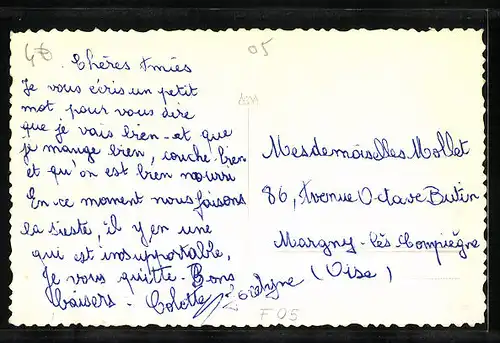 05
Chères Amies
Je vous écris un petit
mot pour vous dire
que je vais bien - et que
je mange bien, couche bien
et qu'on est bien nourri
En ce moment nous faisons
la sieste, il y en une
qui est insupportable,
Je vous quitte - Bons
baisers - Colette
Mesdemoiselles Mollet
86, Avenue Octave Butin
Margny-lès Compiègne
(Oise)
F 05